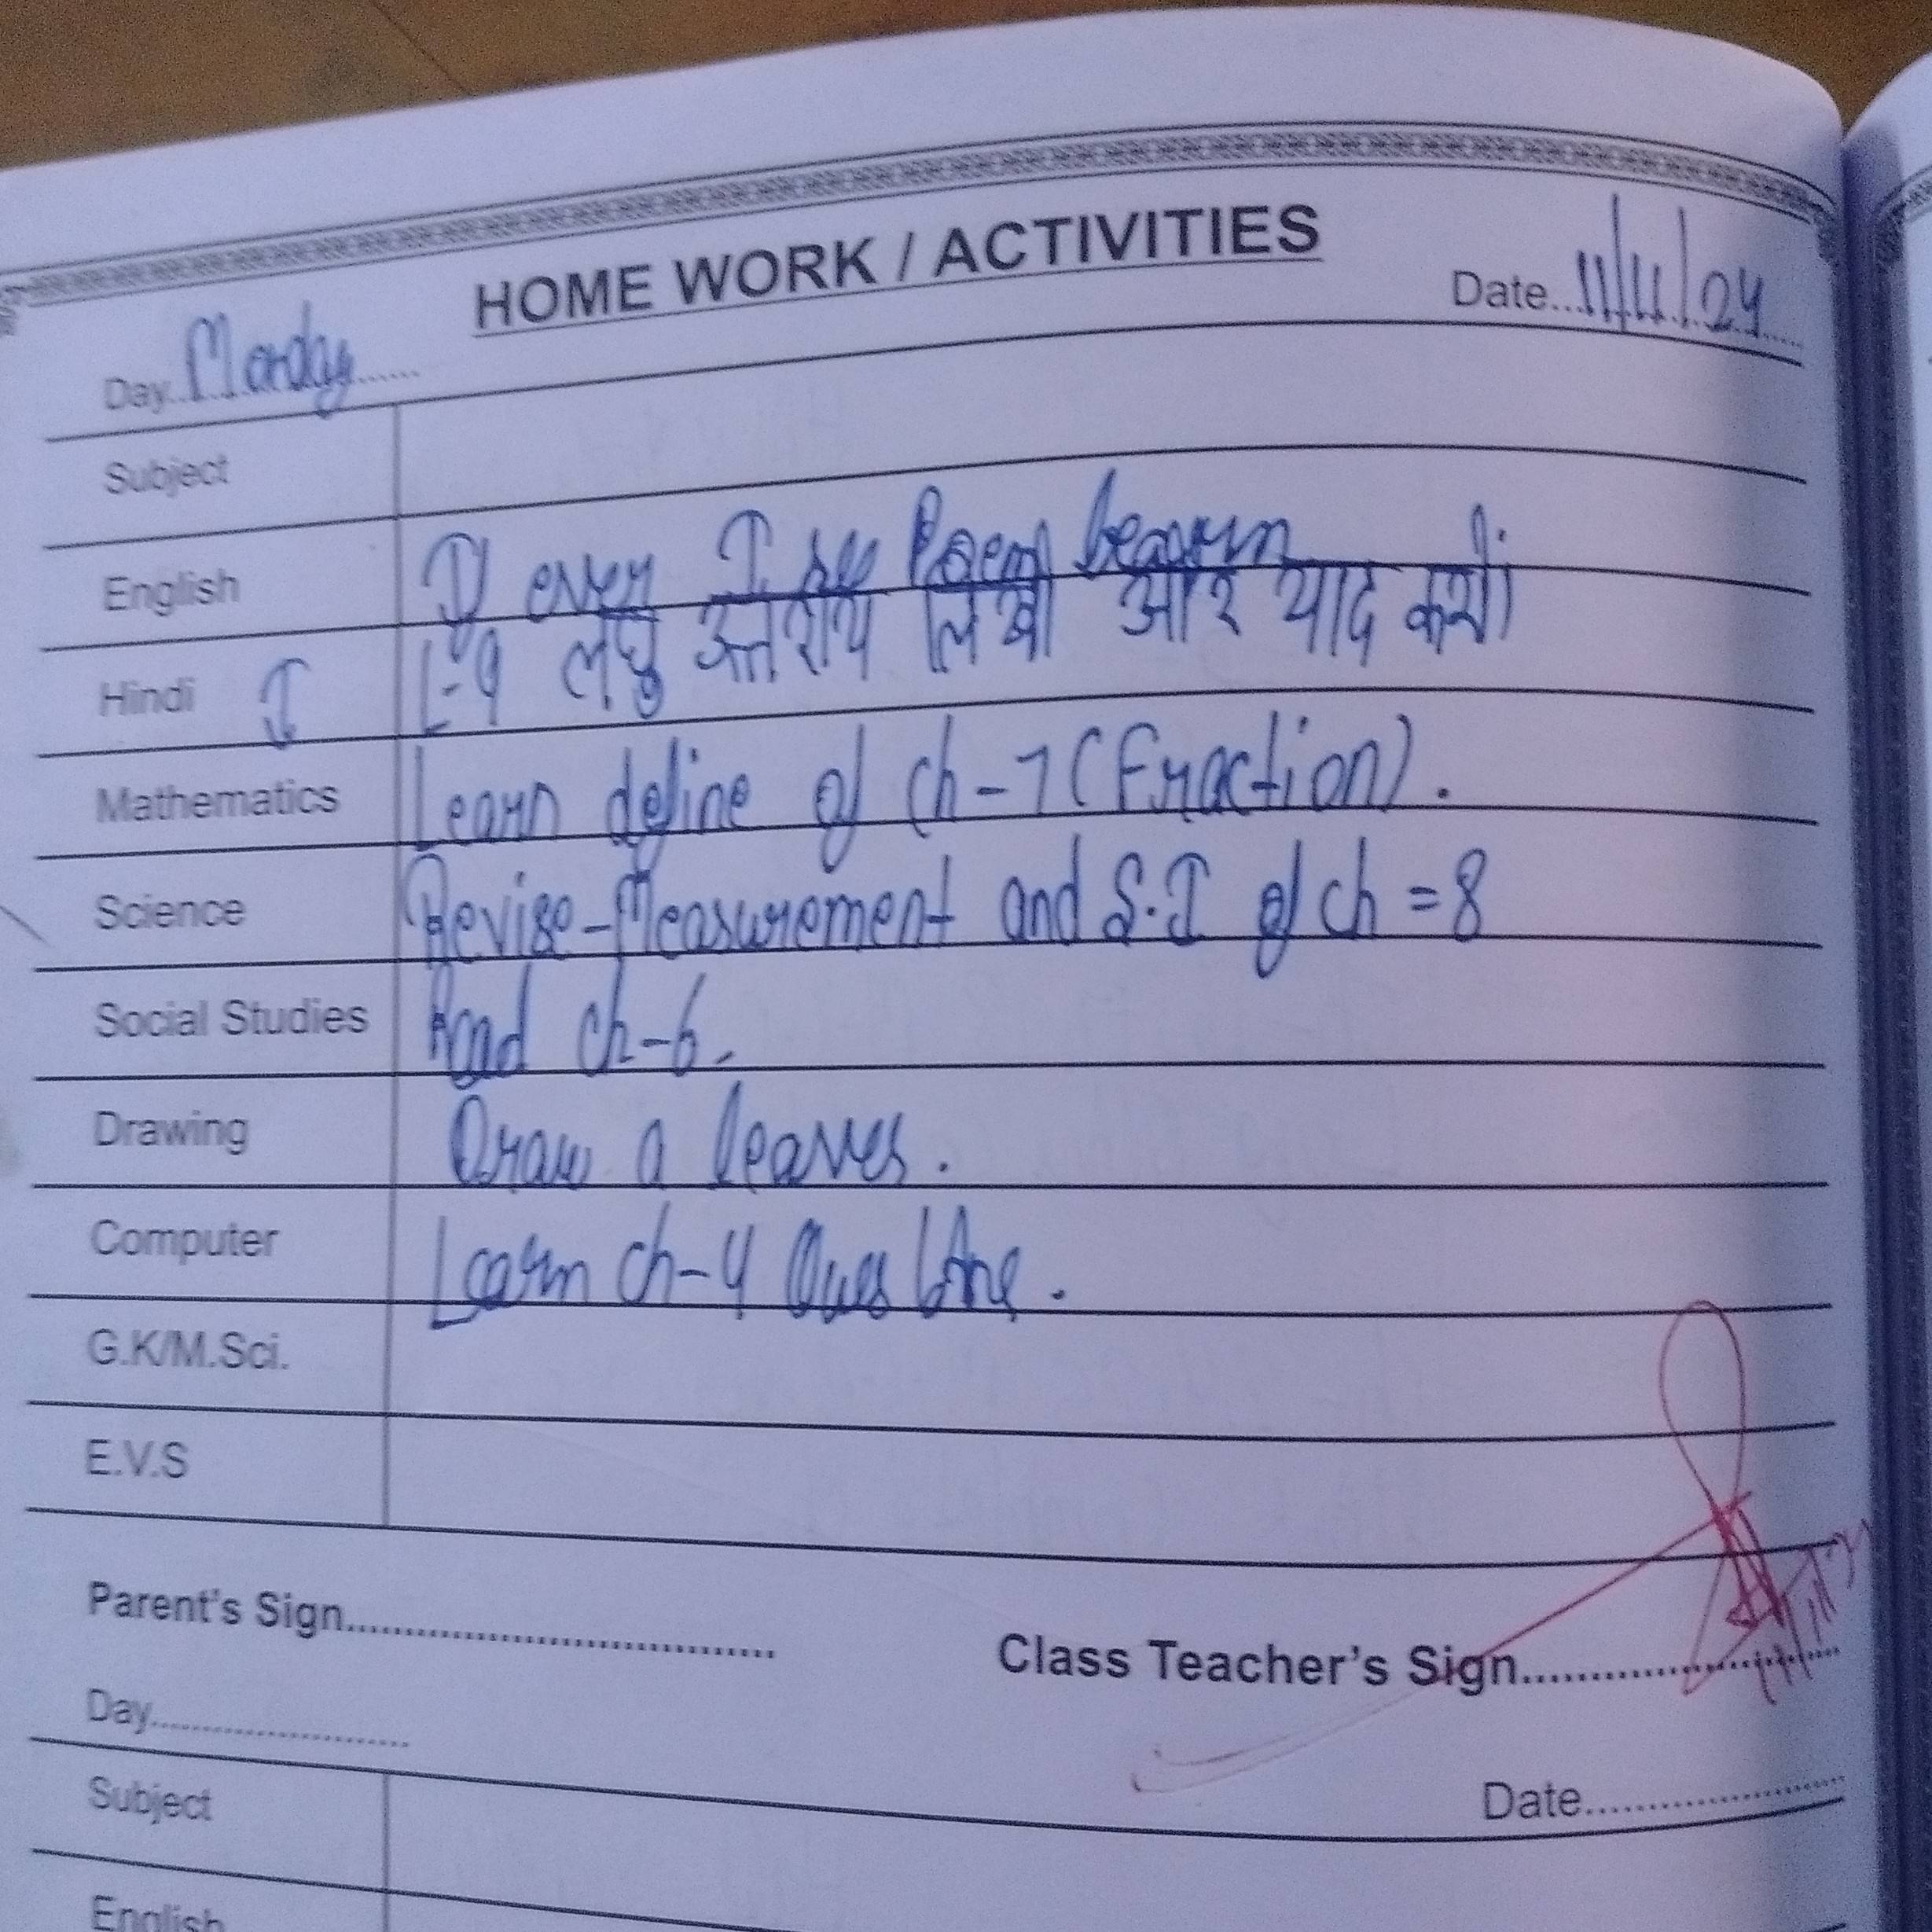 HOME WORK / ACTIVITIES
Day Monday Date 11/11/24
Subject
English If ever I see Poem learn
Hindi I L-9 लघु उत्तरीय लिखो और याद करो।
Mathematics Learn define of ch-7 (Fraction).
Science Revise-Measurement and S.I of ch = 8
Social Studies Read ch-6.
Drawing Draw a leaves.
Computer Learn ch-4 Ques/Ans.
G.K/M.Sci.
E.V.S
Parent's Sign
Class Teacher's Sign
Day
Date
Subject
English